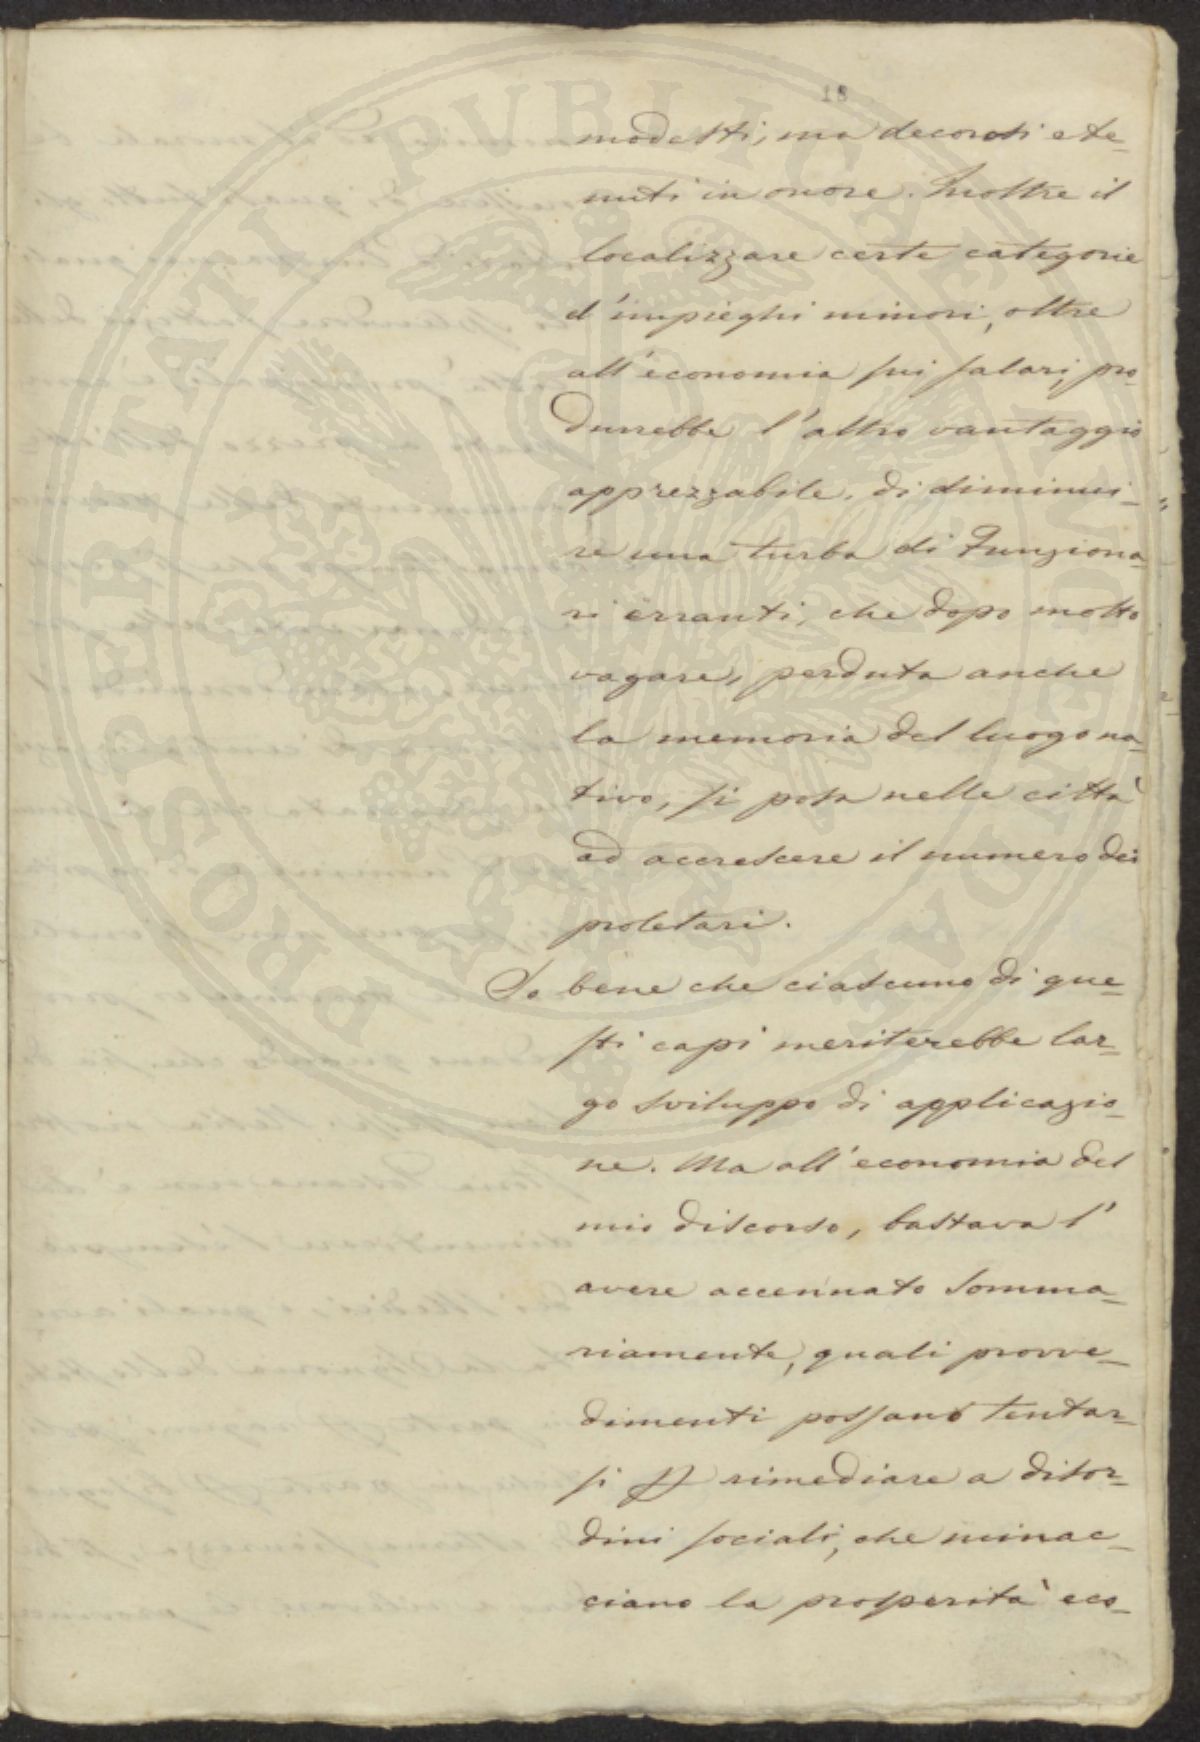 18
modesti, ma decorosi e te-
nuti in onore. Inoltre il
localizzare certe categorie
d'impieghi minori, oltre
all'economia sui salari, pro-
durrebbe l'altro vantaggio
apprezzabile, di diminui-
re una turba di Funziona-
ri erranti, che dopo molto
vagare, perduta anche
la memoria del luogo na-
tivo, si posa nelle città
ad accrescere il numero dei
proletari.
So bene che ciascuno di que-
sti capi meriterebbe lar-
go sviluppo di applicazio-
ne. Ma all'economia del
mio discorso, bastava l'
avere accennato somma-
riamente, quali provve-
dimenti possano tentar-
si p rimediare a disor-
dini sociali, che minac-
ciano la prosperità eco-
PROSPERITATI PVBLICAE AVGENDAE